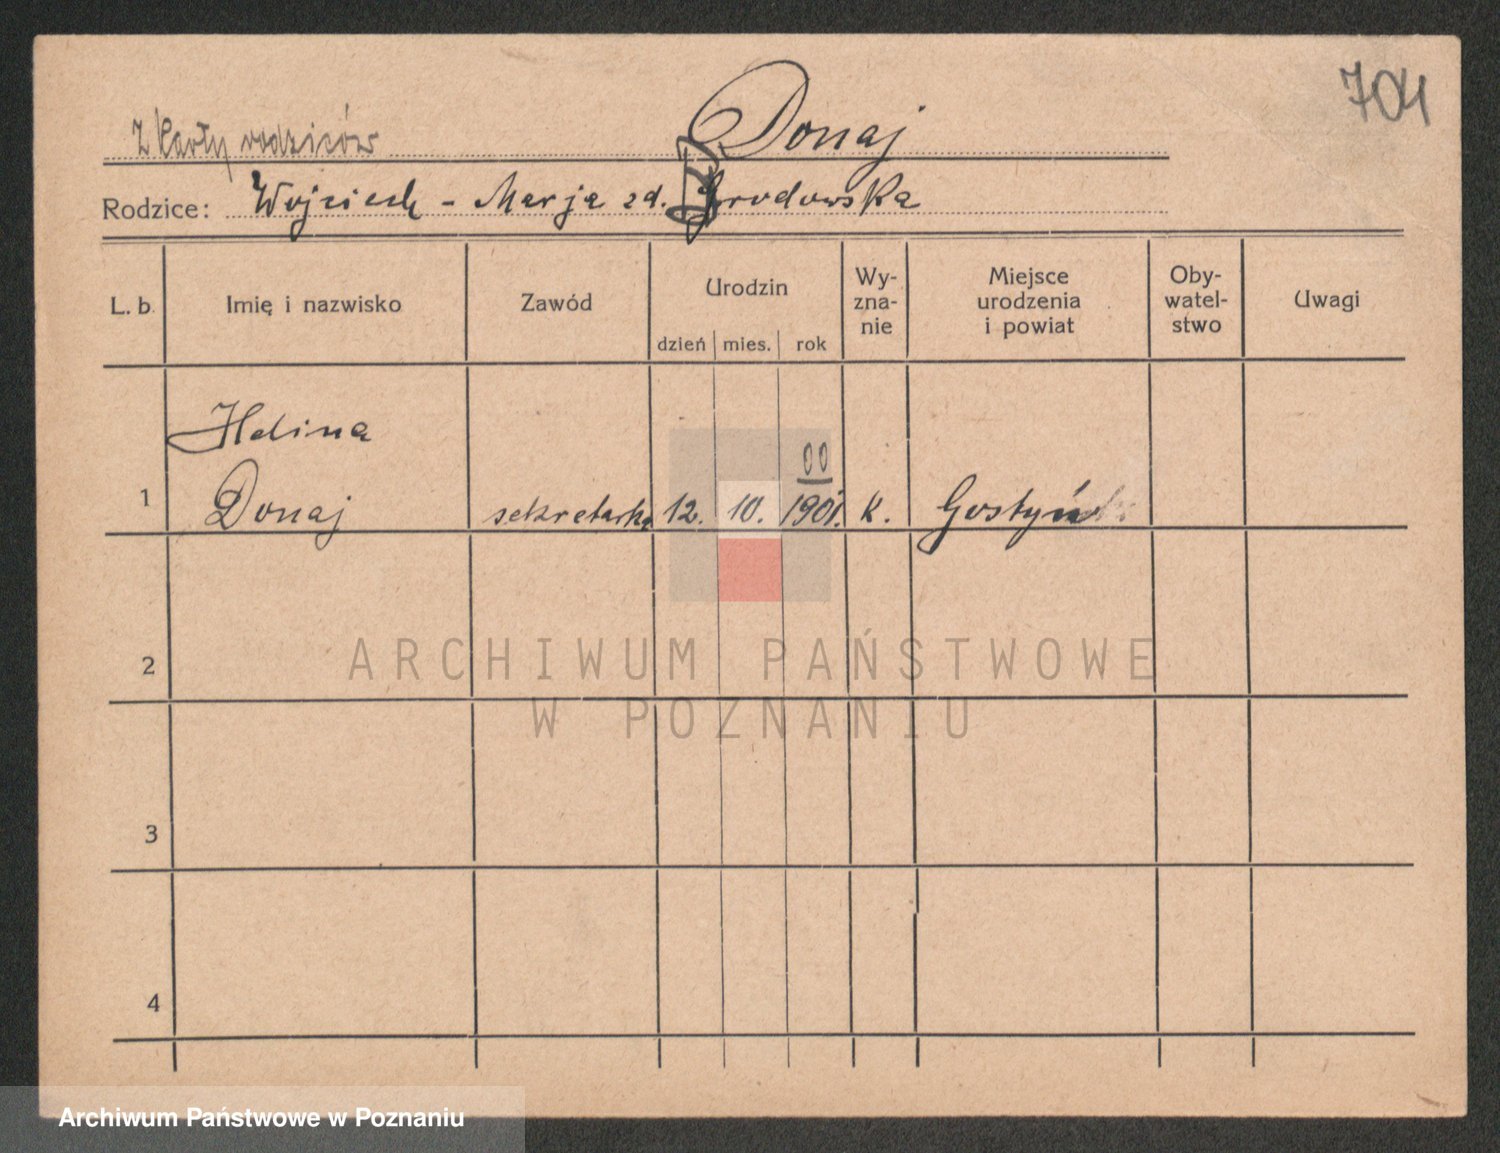 704
Z karty rodziców Donaj
Rodzice: Wojciech - Marja zd. Grodowska
L. b. Imię i nazwisko Zawód Urodzin Wy-zna-nie Miejsce urodzenia i powiat Oby-watel-stwo Uwagi
dzień mies. rok
Helina
00
1 Donaj sekretarka 12. 10. 1901. k. Gostyń
2
ARCHIWUM PAŃSTWOWE
W POZNANIU
3
4
Archiwum Państwowe w Poznaniu